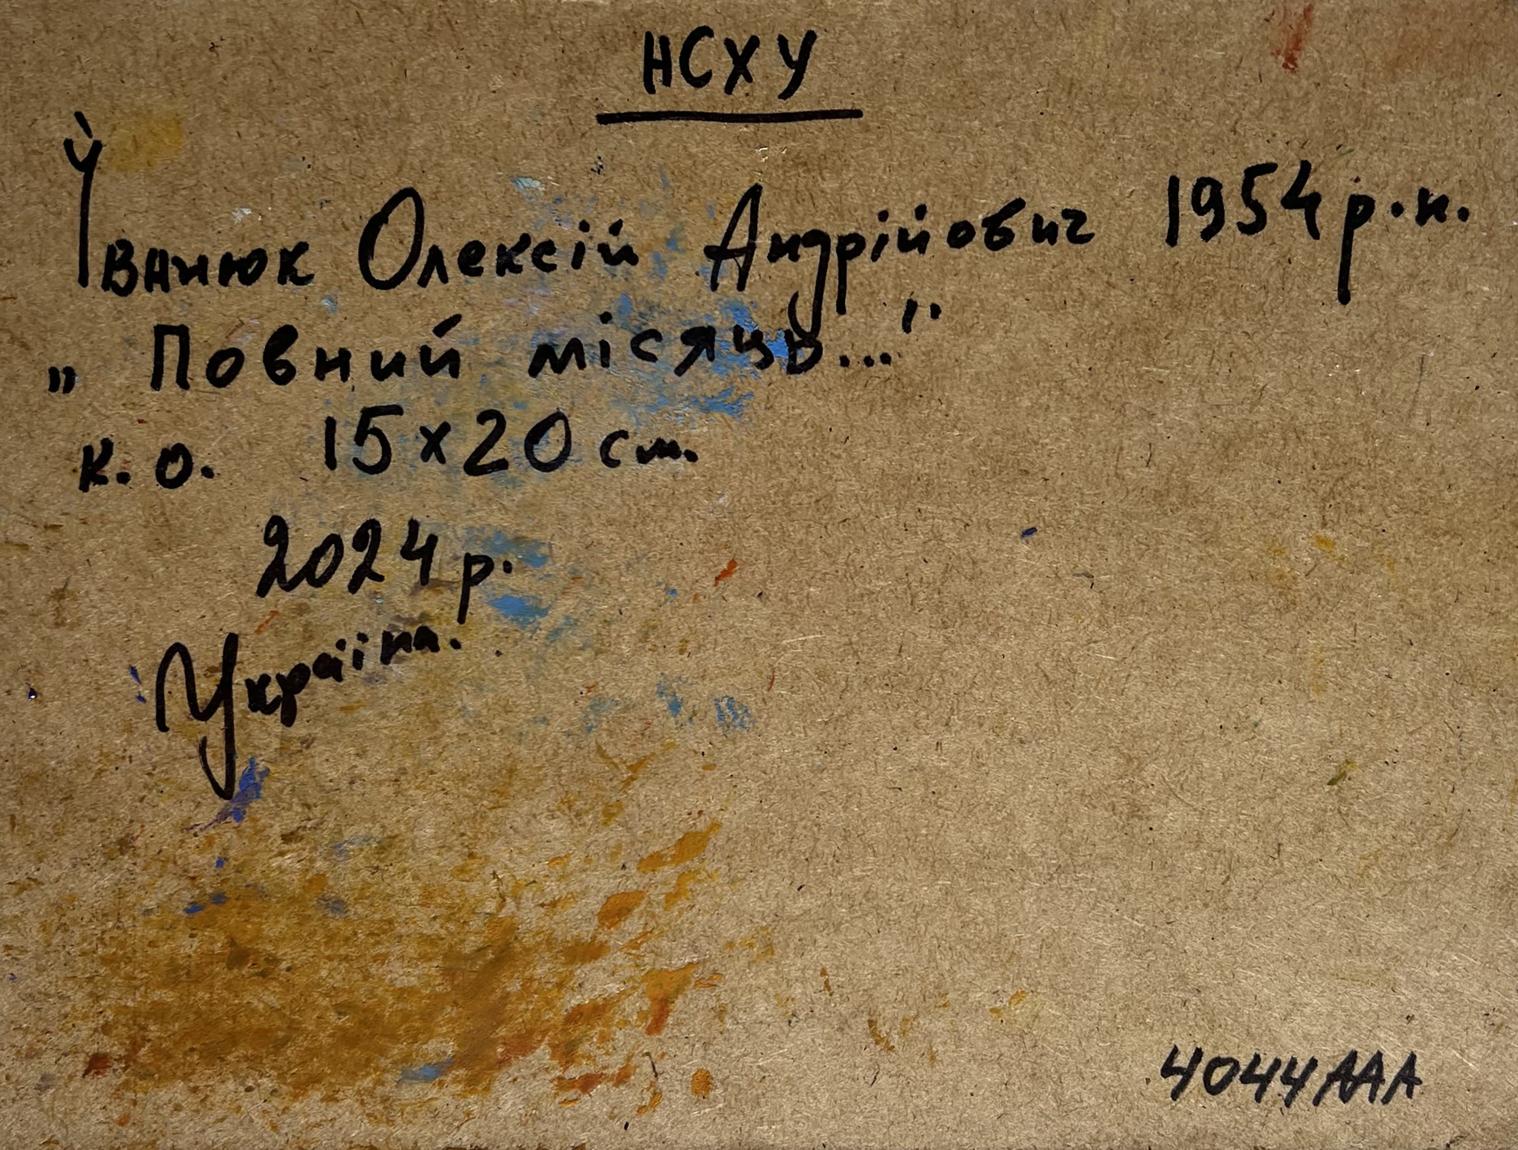 НСХУ
Іванюк Олексій Андрійович 1954 р.н.
„Повний місяць..."
к.о. 15х20 см.
2024 р.
Україна.
4044ААА